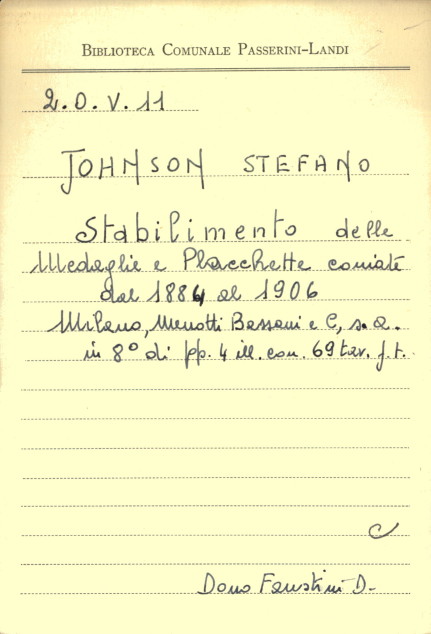 BIBLIOTECA COMUNALE PASSERINI-LANDI
2.O.V.11
JOHNSON STEFANO
Stabilimento delle
Medaglie e Placchette coniate
dal 1884 al 1906
Milano, Menotti Bassani e C, s.a.
in 8° di pp. 4 ill. con. 69 tav. f.t.
C
Dono Faustini D.